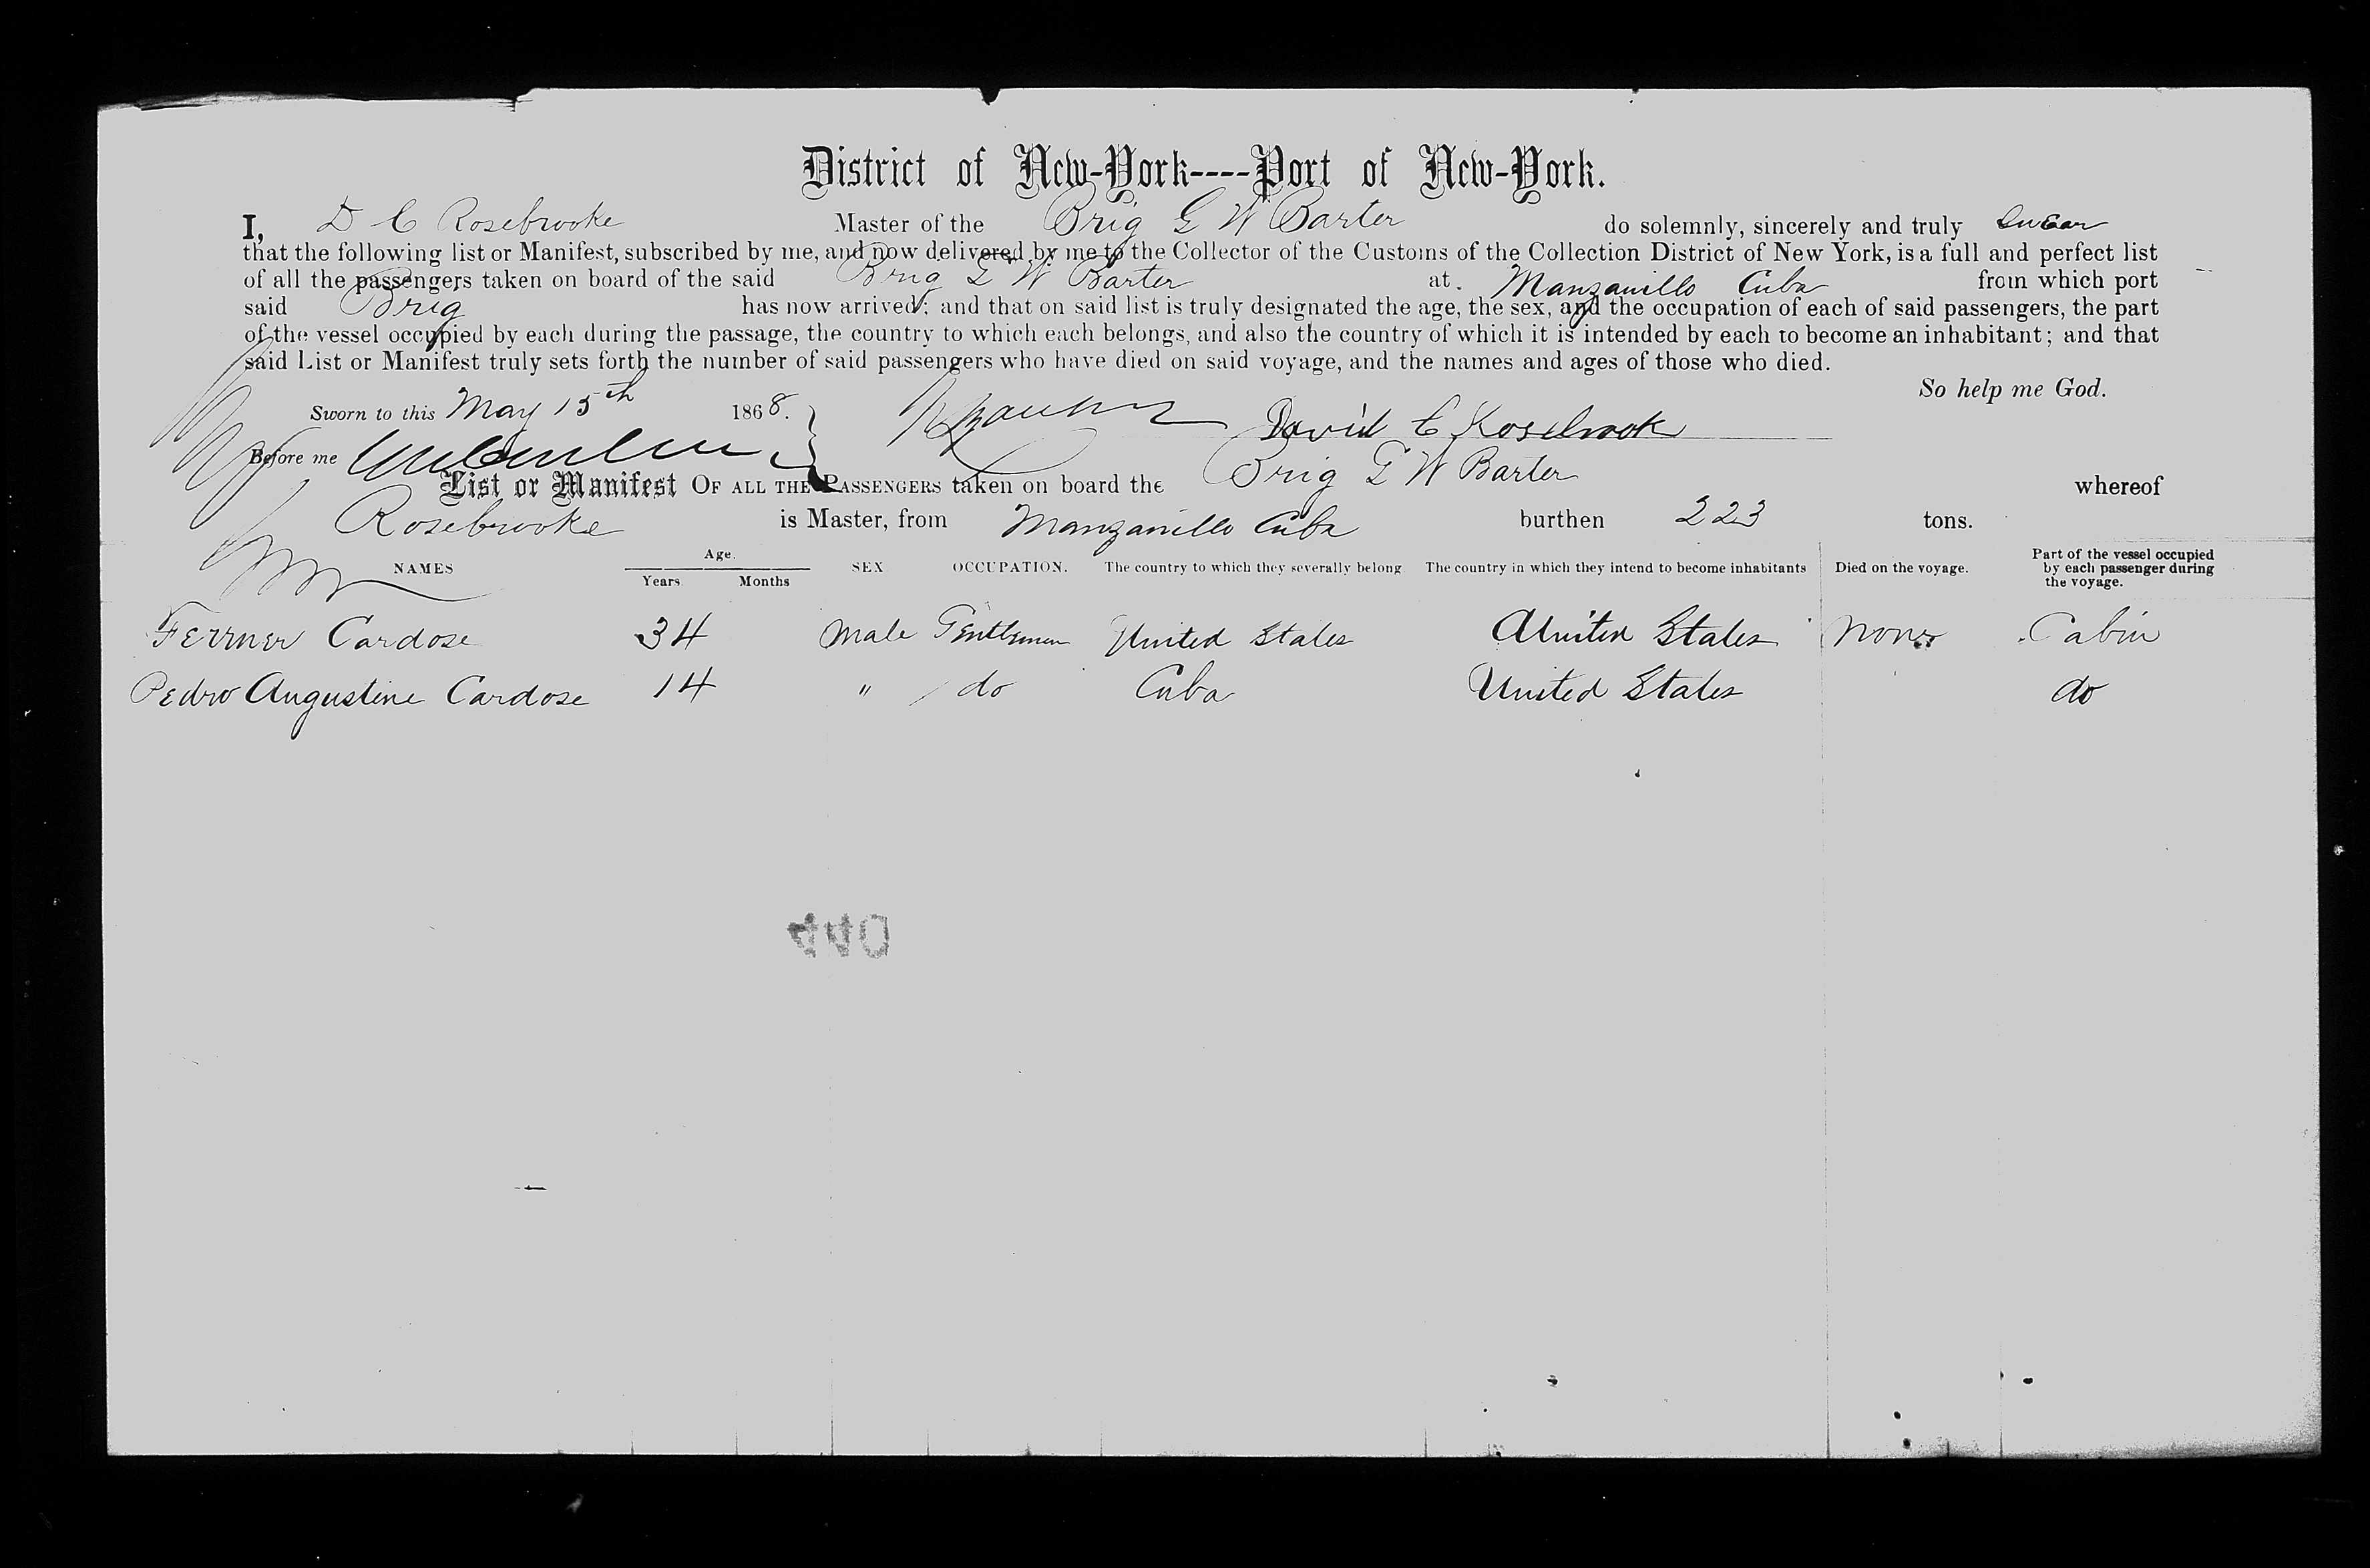 District of New-York----Port of New-York.
I, D C Rosebrooke Master of the Brig G W Barter do solemnly, sincerely and truly swear
that the following list or Manifest, subscribed by me, and now delivered by me to the Collector of the Customs of the Collection District of New York, is a full and perfect list
of all the passengers taken on board of the said Brig G W Barter at Manzanillo Cuba from which port
said Brig has now arrived; and that on said list is truly designated the age, the sex, and the occupation of each of said passengers, the part
of the vessel occupied by each during the passage, the country to which each belongs, and also the country of which it is intended by each to become an inhabitant; and that
said List or Manifest truly sets forth the number of said passengers who have died on said voyage, and the names and ages of those who died.
So help me God.
Sworn to this May 15th 1868.
David C Rosebrook
Before me
List or Manifest OF ALL THE PASSENGERS taken on board the Brig G W Barter whereof
Rosebrooke is Master, from Manzanillo Cuba burthen 223 tons.
NAMES Age. Years. Months SEX OCCUPATION. The country to which they severally belong The country in which they intend to become inhabitants Died on the voyage. Part of the vessel occupied by each passenger during the voyage.
Cardose 34 Male Gentleman United States United States None Cabin
Pedro Augustine Cardose 14 " do Cuba United States do
440